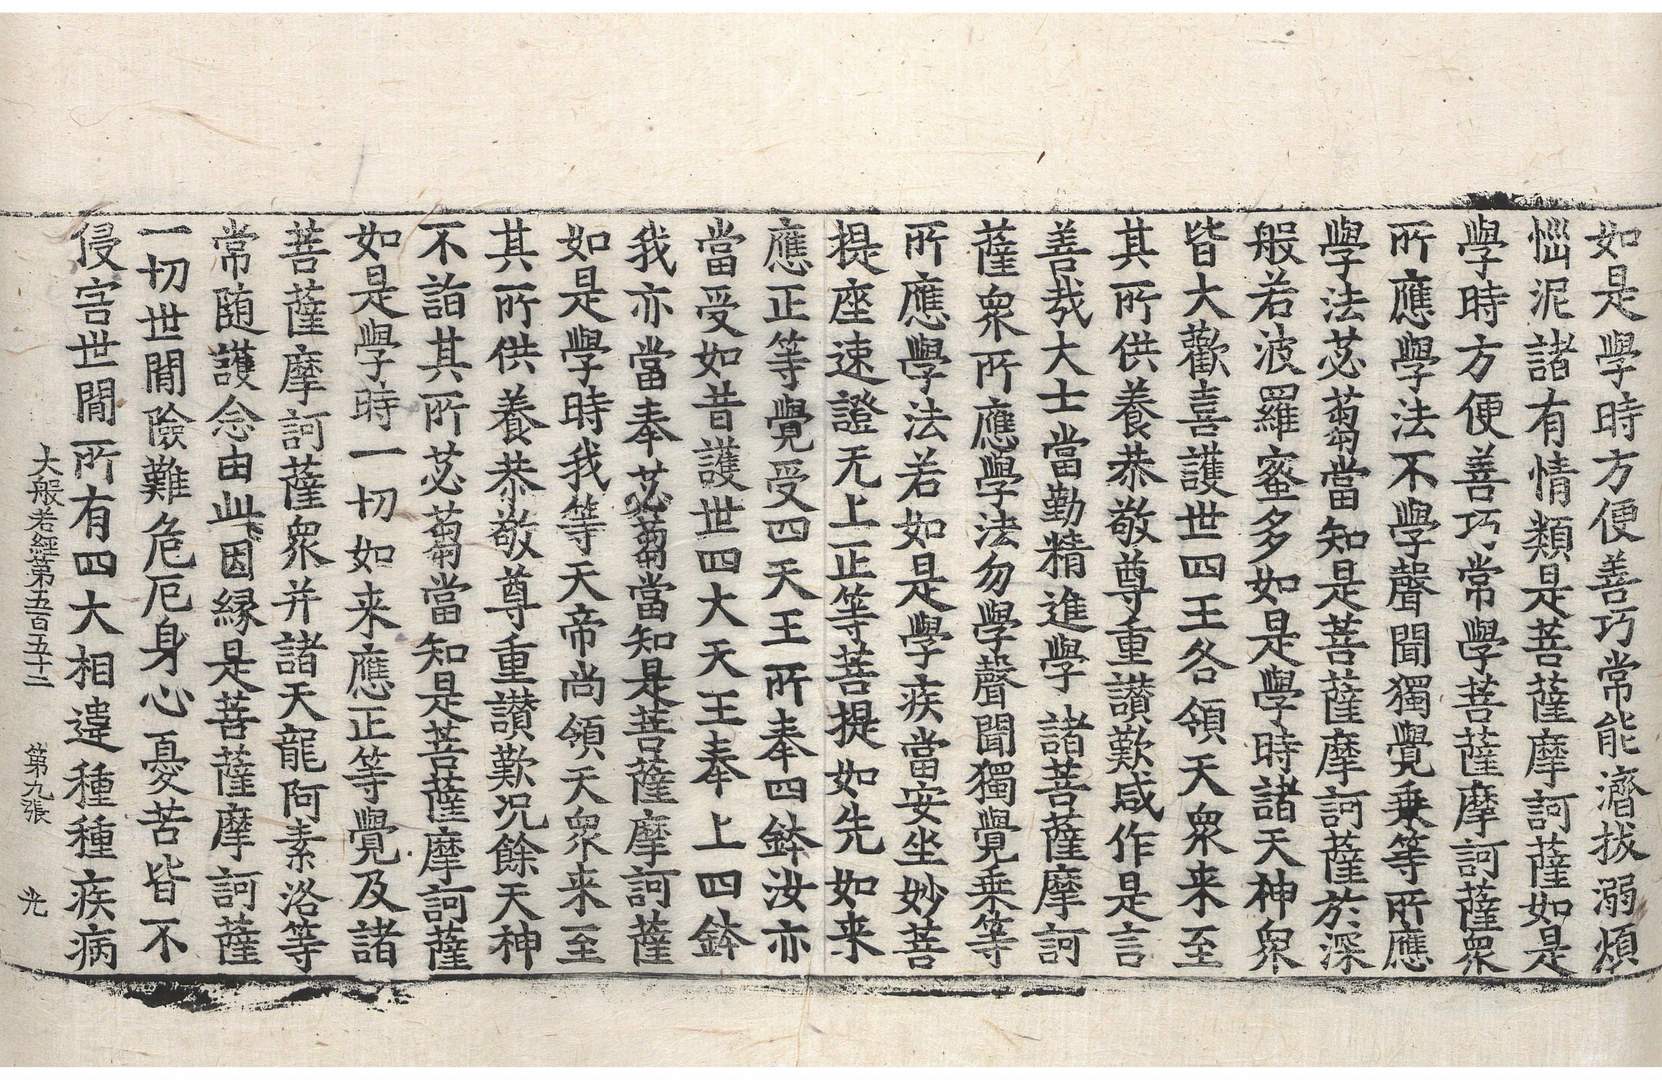 如是學時方便善巧常能濟拔溺煩
惱泥諸有情類是菩薩摩訶薩如是
學時方便善巧常學菩薩摩訶薩衆
所應學法不學聲聞獨覺乗等所應
學法苾蒭當知是菩薩摩訶薩於深
般若波羅蜜多如是學時諸天神衆
皆大歡喜護世四王各領天衆来至
其所供養恭敬尊重讃歎咸作是言
善哉大士當勤精進學諸菩薩摩訶
薩衆所應學法勿學聲聞獨覺乗等
所應學法若如是學疾當安坐妙菩
提座速證无上正等菩提如先如来
應正等覺受四天王所奉四鉢汝亦
當受如昔護世四大天王奉上四鉢
我亦當奉苾蒭當知是菩薩摩訶薩
如是學時我等天帝尚領天衆来至
其所供養恭敬尊重讃歎况餘天神
不詣其所苾蒭當知是菩薩摩訶薩
如是學時一切如来應正等覺及諸
菩薩摩訶薩衆并諸天龍阿素洛等
常随護念由此因縁是菩薩摩訶薩
一切世間險難危厄身心憂苦皆不
侵害世間所有四大相違種種疾病
大般若經第五百五十二　第九張　光